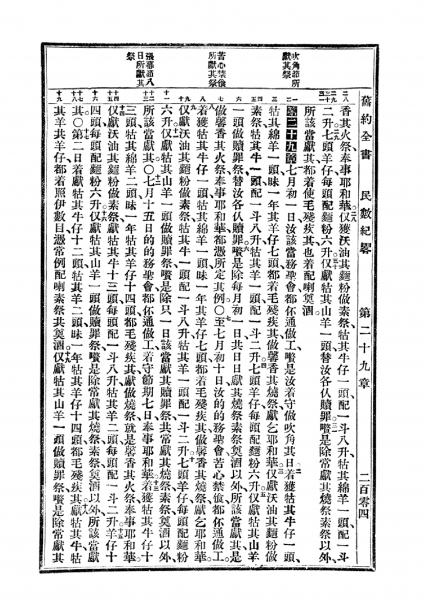 舊約全書 民數紀畧 第二十九章 二百零四
吹角節所
獻其祭
苦心禁食
所獻其祭
張幕節八
日所獻其
祭
香其火祭奉事耶和華仅獲沃油其麵粉做素祭牯其牛仔一頭配一斗八升牯其綿羊一頭配一斗
二升七頭羊仔每頭配麵粉六升仅獻牯其山羊一頭替汝各仈贖罪除常獻其燒祭素祭以外
所該當獻其都着使毛殘疾其也着配喇奠酒
第二十九章七月初一日汝該當務聖會都伓通做工嚽是汝着守做吹角其日着獲牯其牛仔一頭
牯其綿羊一頭㫘一年其羊仔七頭都着毛殘疾其做馨香其燒祭獻乞耶和華仅獻沃油其麵粉做
素祭牯其牛一頭配一斗八升牯其羊一頭配一斗二升七頭羊仔每頭配麵粉六升仅獻牯其山羊
一頭做贖罪祭替汝各仈贖罪嚽是除每月初一日共日日獻其燒祭素祭奠酒以外所該當獻其是
做馨香其火祭奉事耶和華都憑所定其例〇至七月初十日汝的的務聖會苦心禁食都伓通做工
着獲牯其牛仔一頭牯其綿羊一頭㫘一年其羊仔七頭都着毛殘疾其做馨香其燒祭獻乞耶和華
仅獻沃油其麵粉做素祭牯其牛一頭配一斗八升牯其羊一頭配一斗二升七頭羊仔每頭配麵粉
六升仅獻牯其山羊一頭做贖罪祭嚽是除只一日該當獻其贖罪祭共常獻其燒祭素祭奠酒以外
所該當獻其〇七月十五日的的務聖會都伓通做工着守節期七日奉事耶和華着獲牯其牛仔十
三頭牯其綿羊二頭㫘一年牯其羊仔十四頭都毛殘疾其獻做燒祭就是馨香其火祭奉事耶和華
仅獻沃油其麵粉做素祭獻牯其牛十三頭每頭配一斗八升牯其羊二頭每頭配一斗二升羊仔十
四頭每頭配麵粉六升仅獻牯其山羊一頭做贖罪祭嚽是除常獻其燒祭素祭奠酒以外所該當獻
其〇第二日着獻牯其牛仔十二頭牯其羊二頭㫘一年牯其羊仔十四頭都毛殘疾其獻牯其牛
其羊共其羊仔都着照伊數目憑常例配喇素祭共奠酒仅獻牯其山羊一頭做贖罪祭嚽是除常獻其